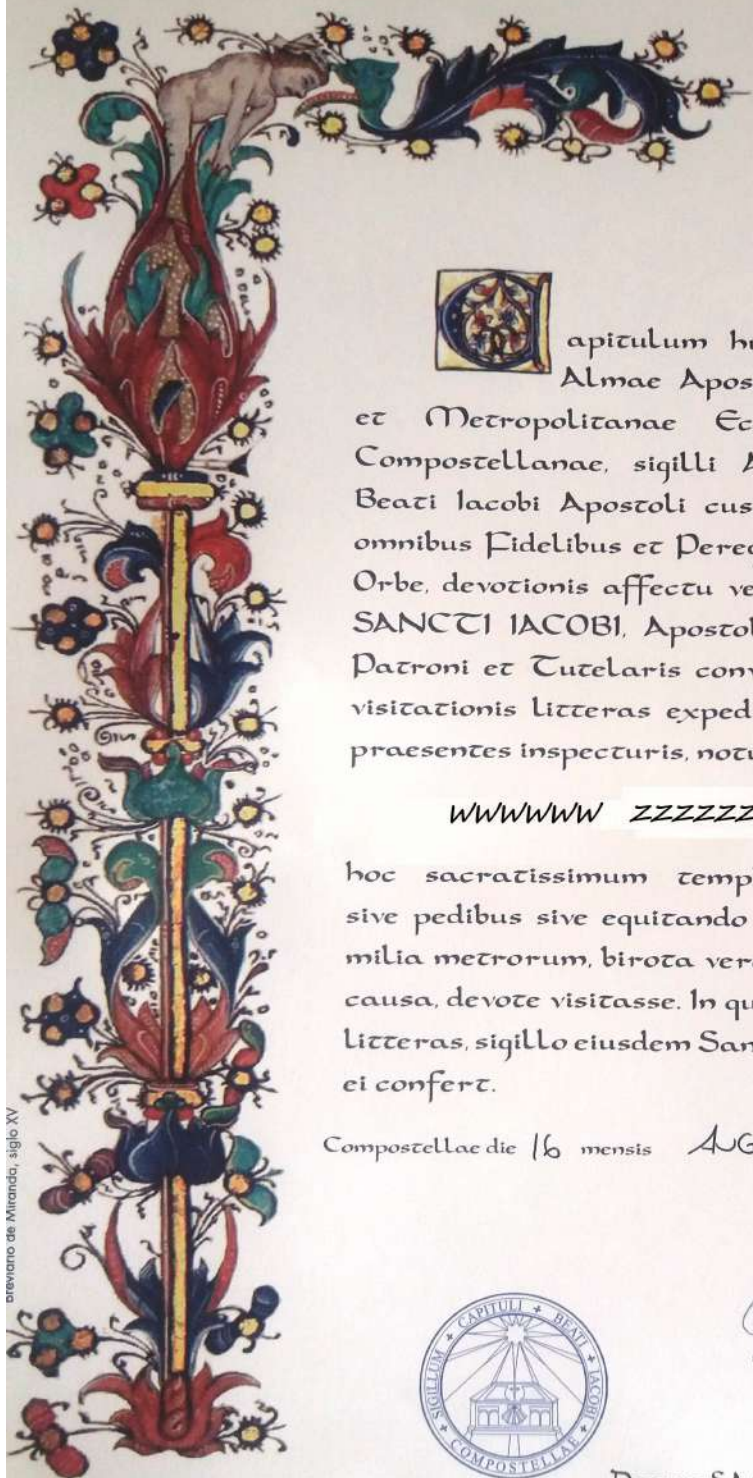 Capitulum hu
Almae Apos
et Metropolitanae Ec
Compostellanae, sigilli A
Beati Iacobi Apostoli cus
omnibus Fidelibus et Pereg
Orbe, devotionis affectu ve
SANCTI IACOBI, Apostol
Patroni et Tutelaris conv
visitationis litteras exped
praesentes inspecturis, notu
wwwwww zzzzzz
hoc sacratissimum temp
sive pedibus sive equitando
milia metrorum, birota ver
causa, devote visitasse. In qu
litteras, sigillo eiusdem San
ei confert.
Compostellae die 16 mensis AUG
Breviario de Miranda, siglo XV
SIGILLUM + CAPITULI + BEATI + IACOBI + COMPOSTELLAE +